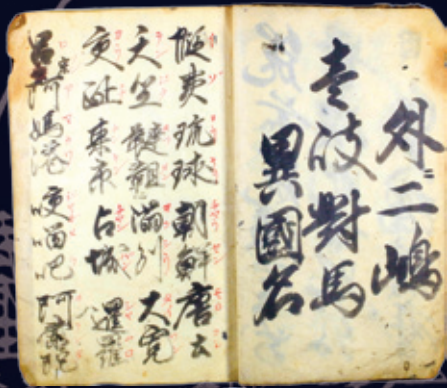 外二嶋
壱岐對馬
異國名
蝦夷琉球朝鮮唐土
天竺韃靼大宛
交趾東京占城暹羅
呂宋阿媽港咬𠺕吧阿蘭陀